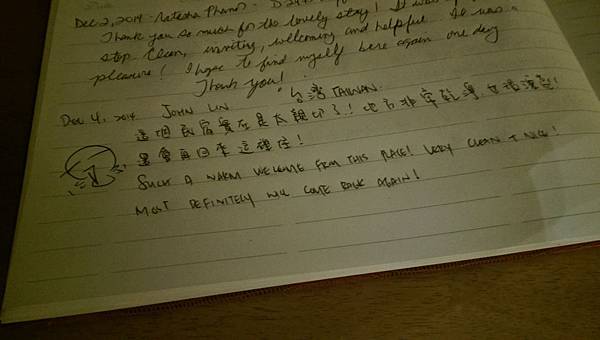 Dec 2, 2014 - Natasha Pham -
Thank you so much for the lovely stay! It was
stop. Clean, inviting, welcoming and helpful. It was a
pleasure! I hope to find myself here again one day
Thank you!
Dec 4, 2014 JOHN LIN 台灣 TAIWAN
這個民宿實在是太親切了!地方非常乾淨又
還會再回來這裡住!
SUCH A WARM WELCOME FROM THIS PLACE! VERY CLEAN & NICE!
MOST DEFINITELY WILL COME BACK AGAIN!